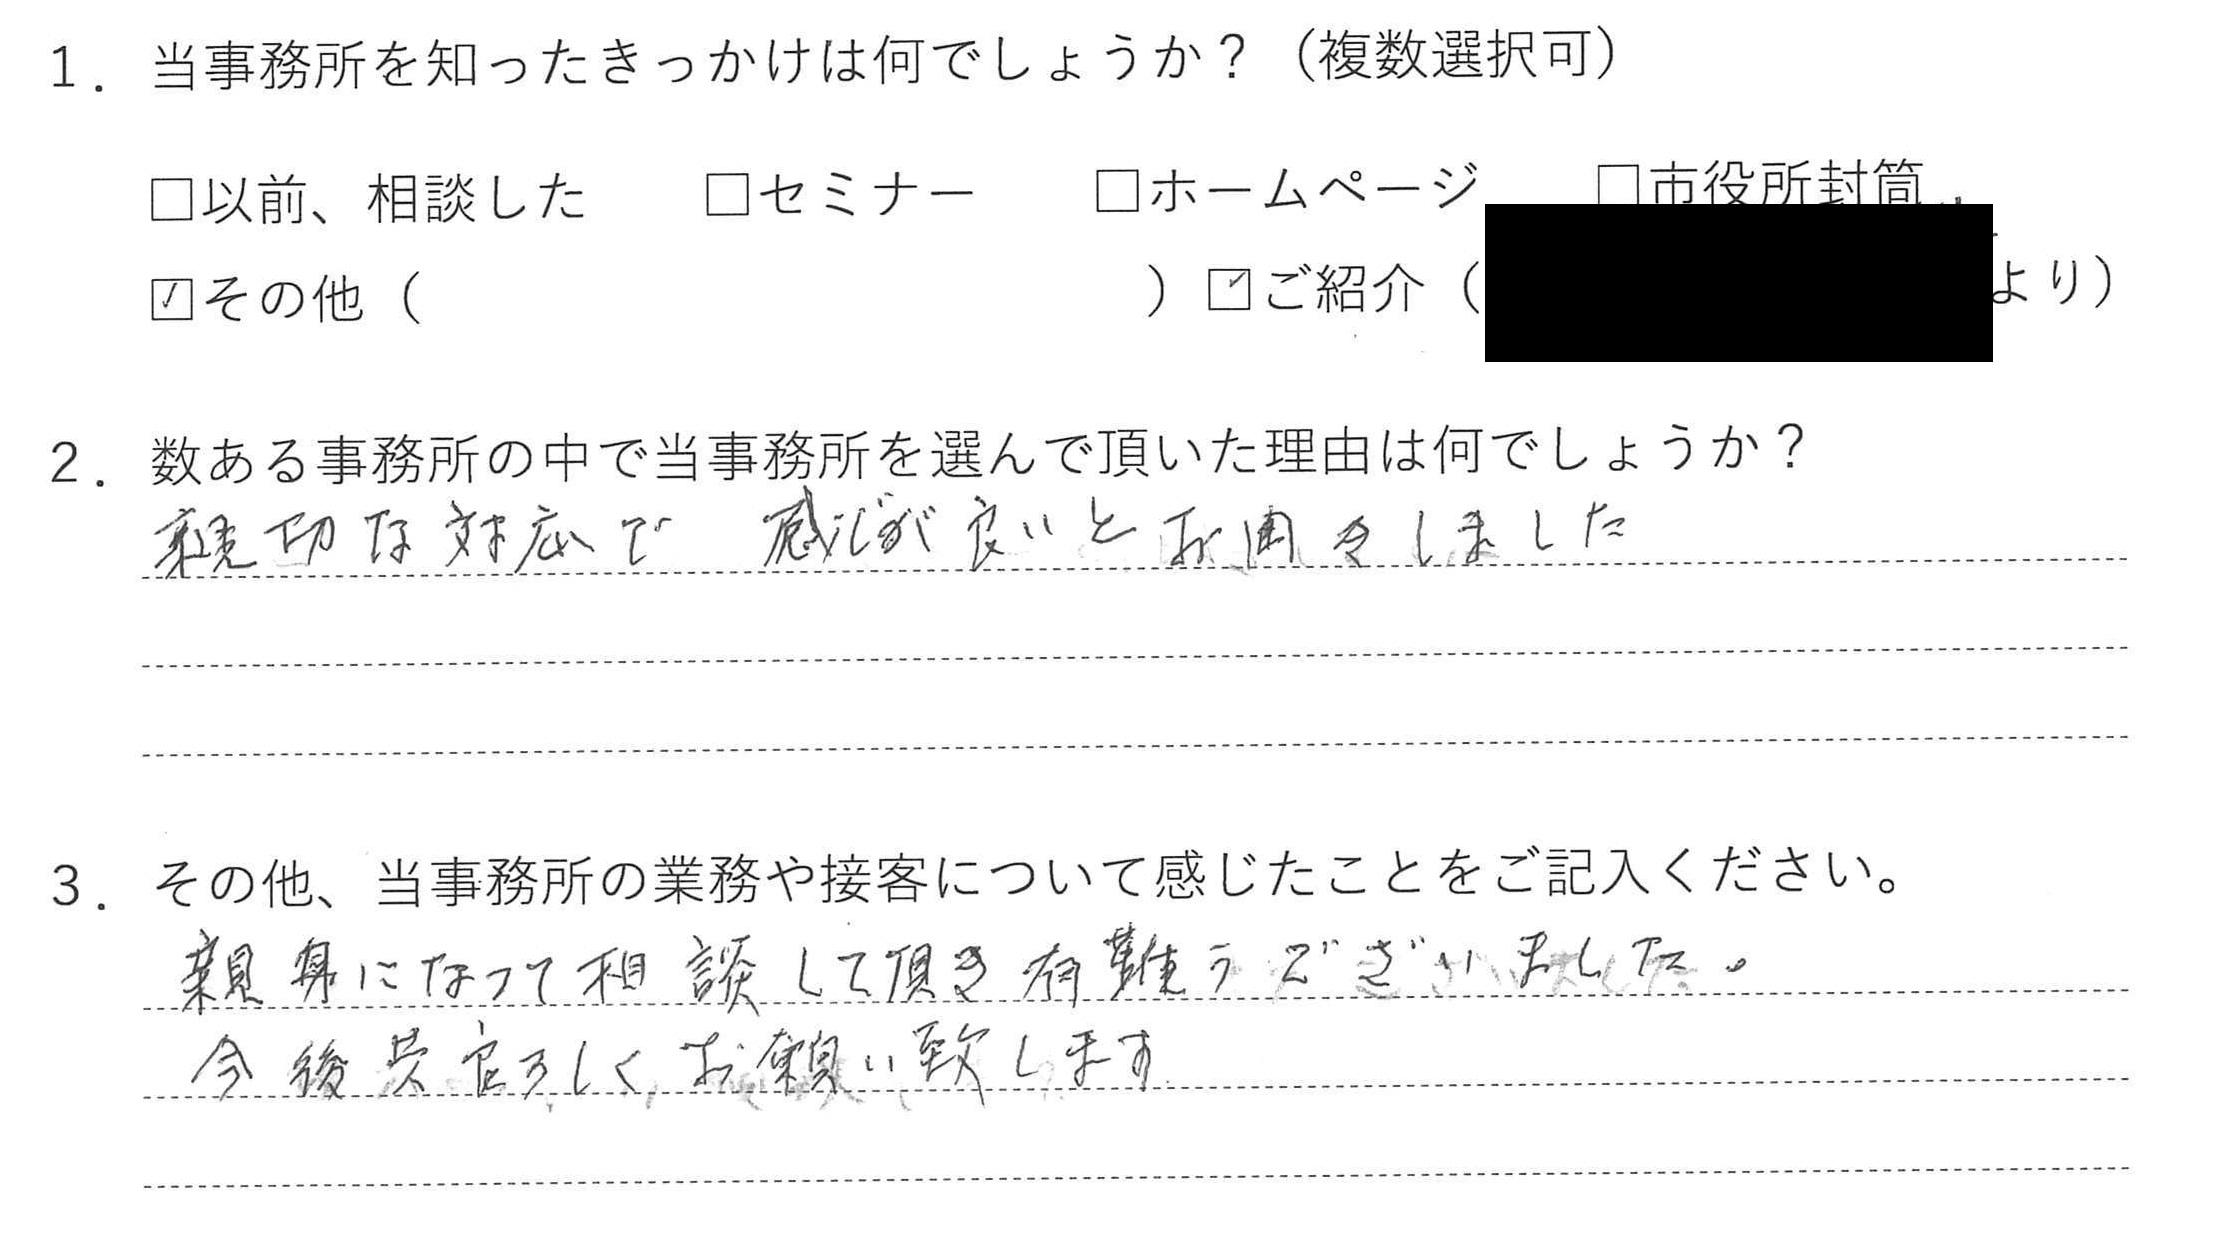 1. 当事務所を知ったきっかけは何でしょうか？（複数選択可）
□以前、相談した □セミナー □ホームページ □市役所封筒
☑その他（ ）☑ご紹介（ より）
2. 数ある事務所の中で当事務所を選んで頂いた理由は何でしょうか？
親切な対応で 感じが良いとお聞きしました
3. その他、当事務所の業務や接客について感じたことをご記入ください。
親身になって相談して頂き有難うございました。
今後共宜ろしくお願い致します